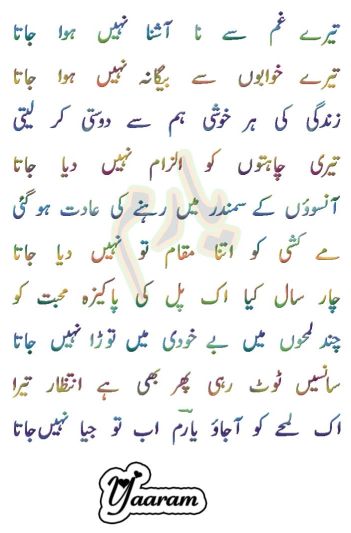 تیرے غم سے نا آشنا نہیں ہوا جاتا
تیرے خوابوں سے بیگانہ نہیں ہوا جاتا
زندگی کی ہر خوشی ہم سے دوستی کر لیتی
تیری چاہتوں کو الزام نہیں دیا جاتا
آنسوؤں کے سمندر میں رہنے کی عادت ہو گئی
مے کشی کو اتنا مقام تو نہیں دیا جاتا
چار سال کیا اک پل کی پاکیزہ محبت کو
چند لمحوں میں بے خودی میں توڑا نہیں جاتا
سانسیں ٹوٹ رہی پھر بھی ہے انتظار تیرا
اک لمحے کو آجاؤ یارم اب تو جیا نہیں جاتا
یارم
Yaaram